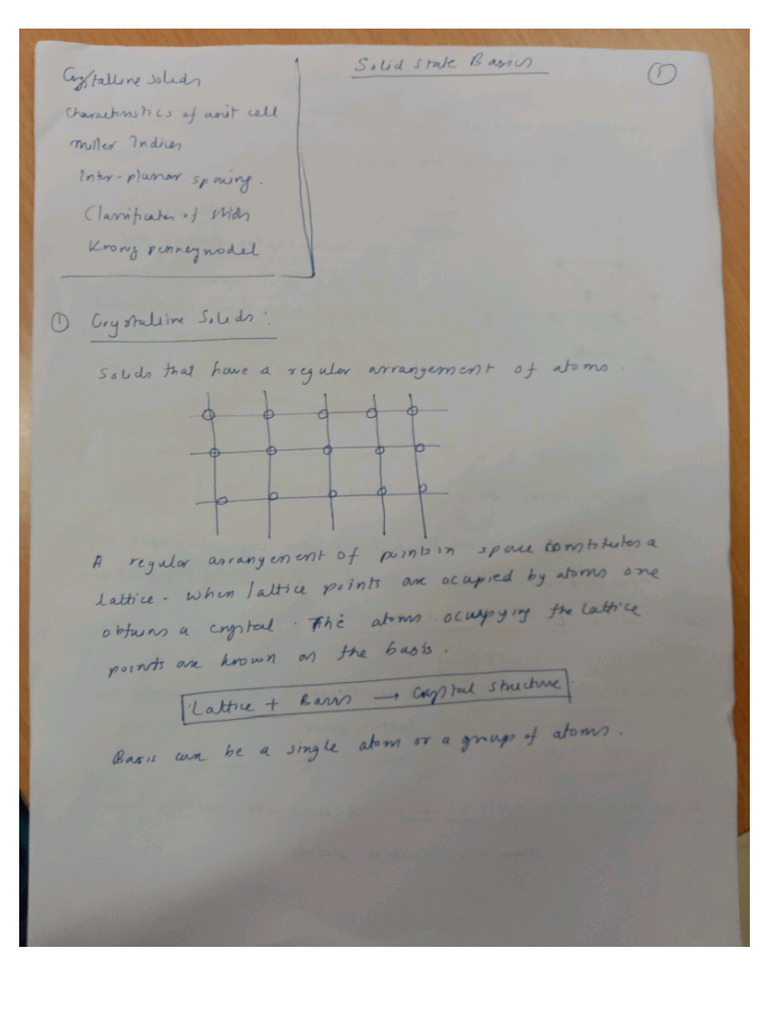 Solid State Basics
①
Crystalline Solids
Characteristics of unit cell
Miller Indices
Inter-planar spacing.
Classification of solids
Kronig penney model
① Crystalline Solids:
Solids that have a regular arrangement of atoms.
A regular arrangement of points in space constitutes a
lattice. When lattice points are ocupied by atoms one
obtains a crystal. The atoms ocupying the lattice
points are known as the basis.
Lattice + Basis → Crystal structure
Basis can be a single atom or a group of atoms.